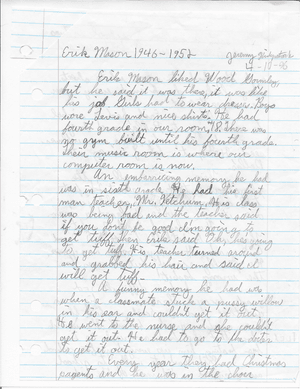 Erik Mason 1946-1952
4-19-96
Erik Mason liked Wood
but he said it was like
his job. Girls had to wear dresses. Boys
wore Levis and nice shirts. He had
fourth grade in our room, 18. There was
no gym built until his fourth grade.
Their music room is where our
computer room is now.
An embarrassing memory he had
was in sixth grade. He had the first
man teacher, Mr. Ketchum. His class
was being bad and the teacher said
if you don't be good I'm going to
get tuff. Then Erik said Oh, he's going
to get tuff. His teacher turned around
and grabbed his hair and said I
will get tuff.
A funny memory he had was
when a classmate stuck a pussy willow
in his ear and couldn't get it out.
He went to the nurse and she couldn't
get it out. He had to go to the
to get it out.
Every year they had Christmas
pagents and he was in the choir